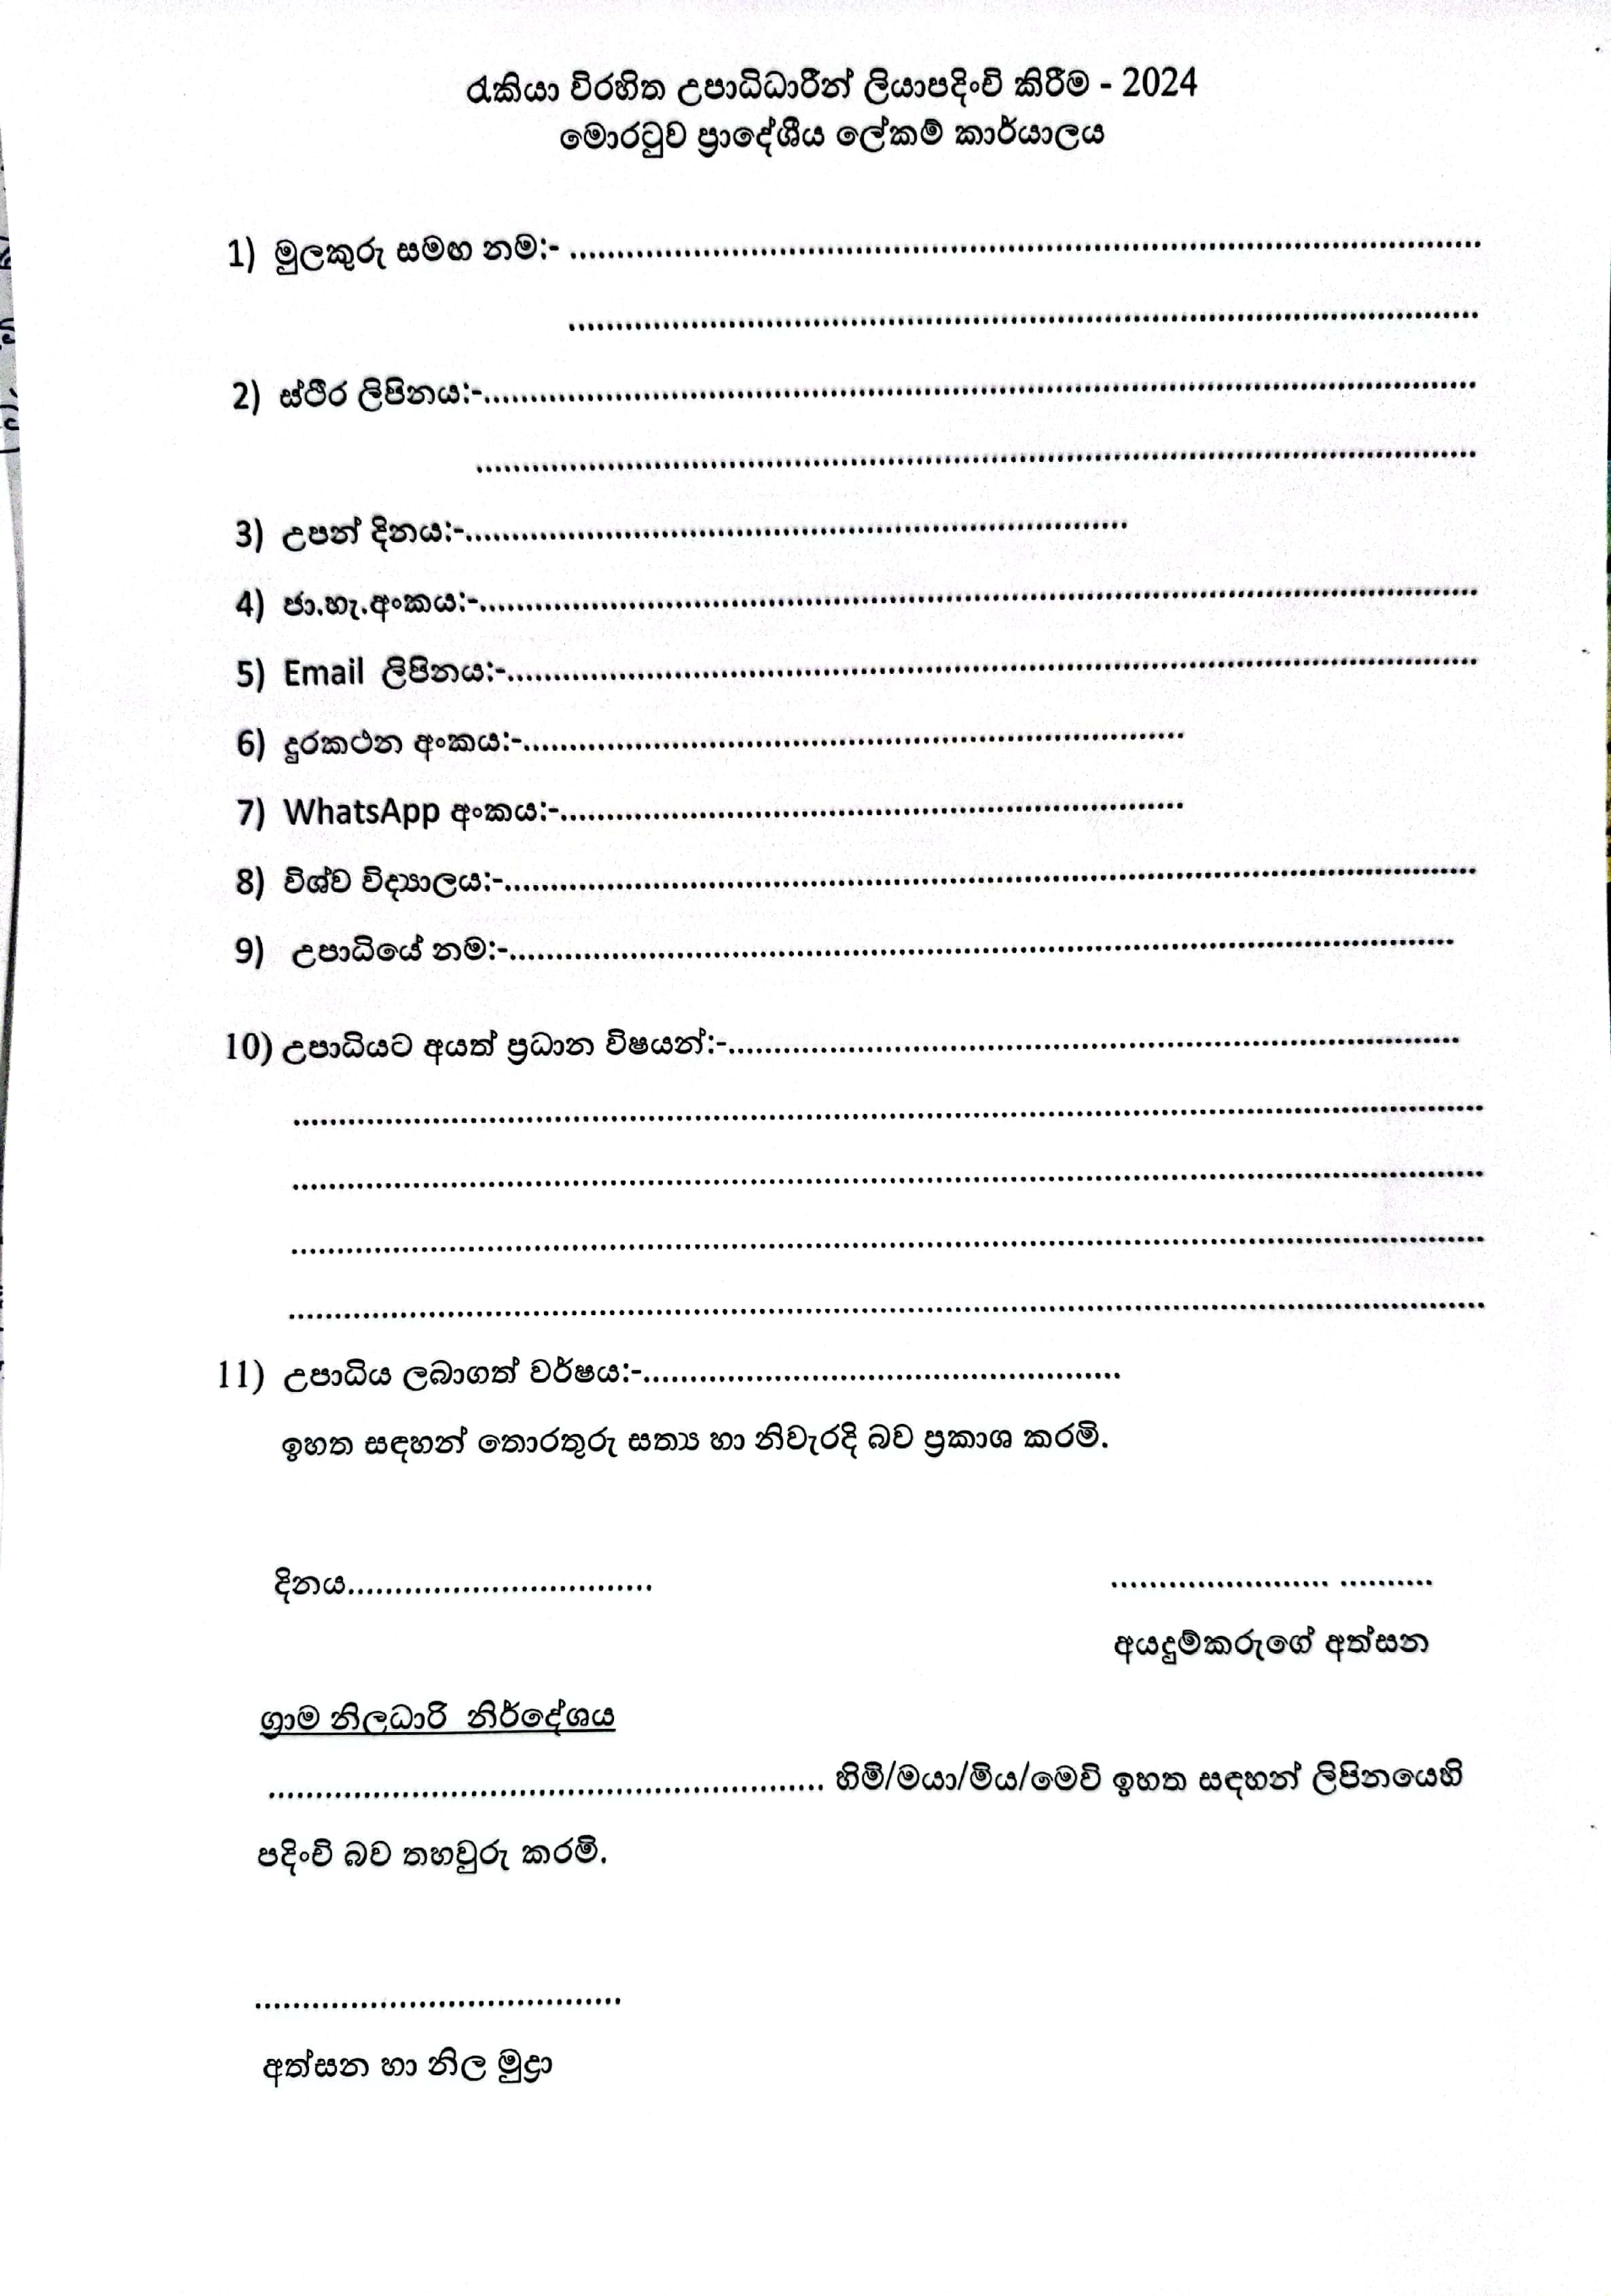 රැකියා විරහිත උපාධිධාරීන් ලියාපදිංචි කිරීම - 2024
මොරටුව ප්‍රාදේශීය ලේකම් කාර්යාලය
1) මුලකුරු සමඟ නම:- ................................................................
................................................................
2) ස්ථීර ලිපිනය:-................................................................
................................................................
3) උපන් දිනය:-................................................
4) ජා.හැ.අංකය:-................................................................
5) Email ලිපිනය:-................................................................
6) දුරකථන අංකය:-................................................
7) WhatsApp අංකය:-................................................
8) විශ්ව විද්‍යාලය:-................................................................
9) උපාධියේ නම:-................................................................
10) උපාධියට අයත් ප්‍රධාන විෂයන්:-................................................
................................................................
................................................................
................................................................
................................................................
11) උපාධිය ලබාගත් වර්ෂය:-................................................
ඉහත සඳහන් තොරතුරු සත්‍ය හා නිවැරදි බව ප්‍රකාශ කරමි.
දිනය................................ ....................... ..........
අයදුම්කරුගේ අත්සන
ග්‍රාම නිලධාරි නිර්දේශය
................................................ හිමි/මයා/මිය/මෙවි ඉහත සඳහන් ලිපිනයෙහි
පදිංචි බව තහවුරු කරමි.
.......................................
අත්සන හා නිල මුද්‍රා